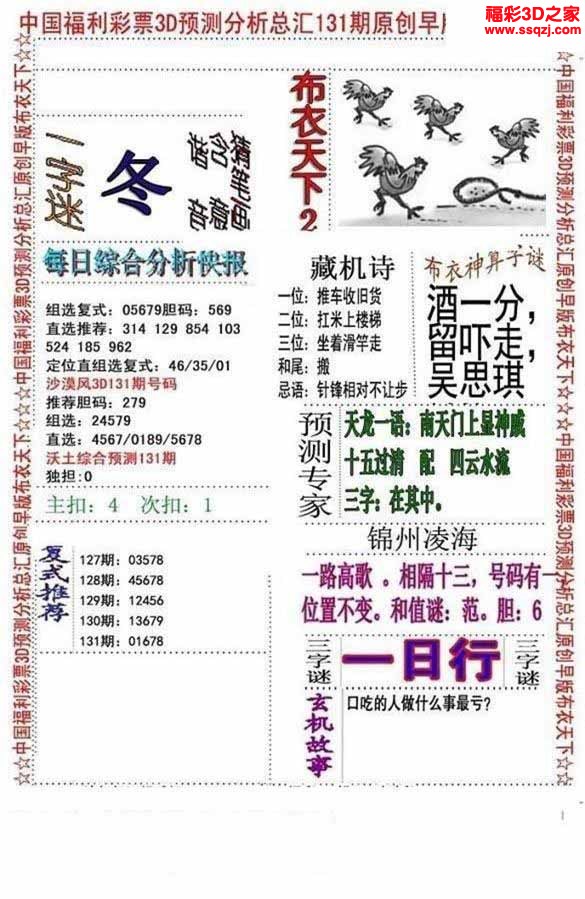 福彩3D之家
www.ssqzj.com
中国福利彩票3D预测分析总汇131期原创早版
☆☆中国福利彩票3D预测分析总汇原创早版布衣天下☆☆中国福利彩票3D预测分析总汇原创早版布衣天下☆☆
一字迷
冬
猜笔画
猜含意
布衣天下2
每日综合分析快报
组选复式：05679胆码：569
直选推荐：314 129 854 103
524 185 962
定位直组选复式：46/35/01
沙漠风3D131期号码
推荐胆码：279
组选：24579
直选：4567/0189/5678
沃土综合预测131期
独担:0
主扣：4 次扣：1
复式推荐
127期：03578
128期：45678
129期：12456
130期：13679
131期：01678
藏机诗
一位：推车收旧货
二位：扛米上楼梯
三位：坐着滑竿走
和尾：搬
忌语：针锋相对不让步
布衣神算子谜
酒一分，
留吓走，
吴思琪
预测专家
天龙一语：南天门上显神威
十五过清 配 四云水流
三字：在其中。
锦州凌海
一路高歌 。相隔十三，号码有一
位置不变。和值谜：范。胆：6
三字谜
一日行
三字谜
玄机故事
口吃的人做什么事最亏?
☆☆中国福利彩票3D预测分析总汇原创早版布衣天下☆☆中国福利彩票3D预测分析总汇原创早版布衣天下☆☆